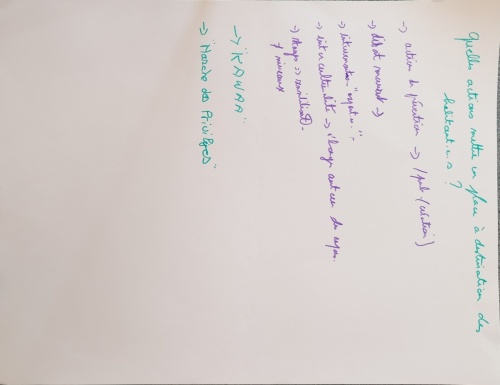 Quelles actions mettre en place à destination des
habitant.e.s ?
→ action de prévention → ( création)
→ débat mouvant →
→ intervention
→ interculturalité → échange autour du repas.
→ stage → sensibilisat°.
→ "KAWAA"
→ "Marche des Privilèges"